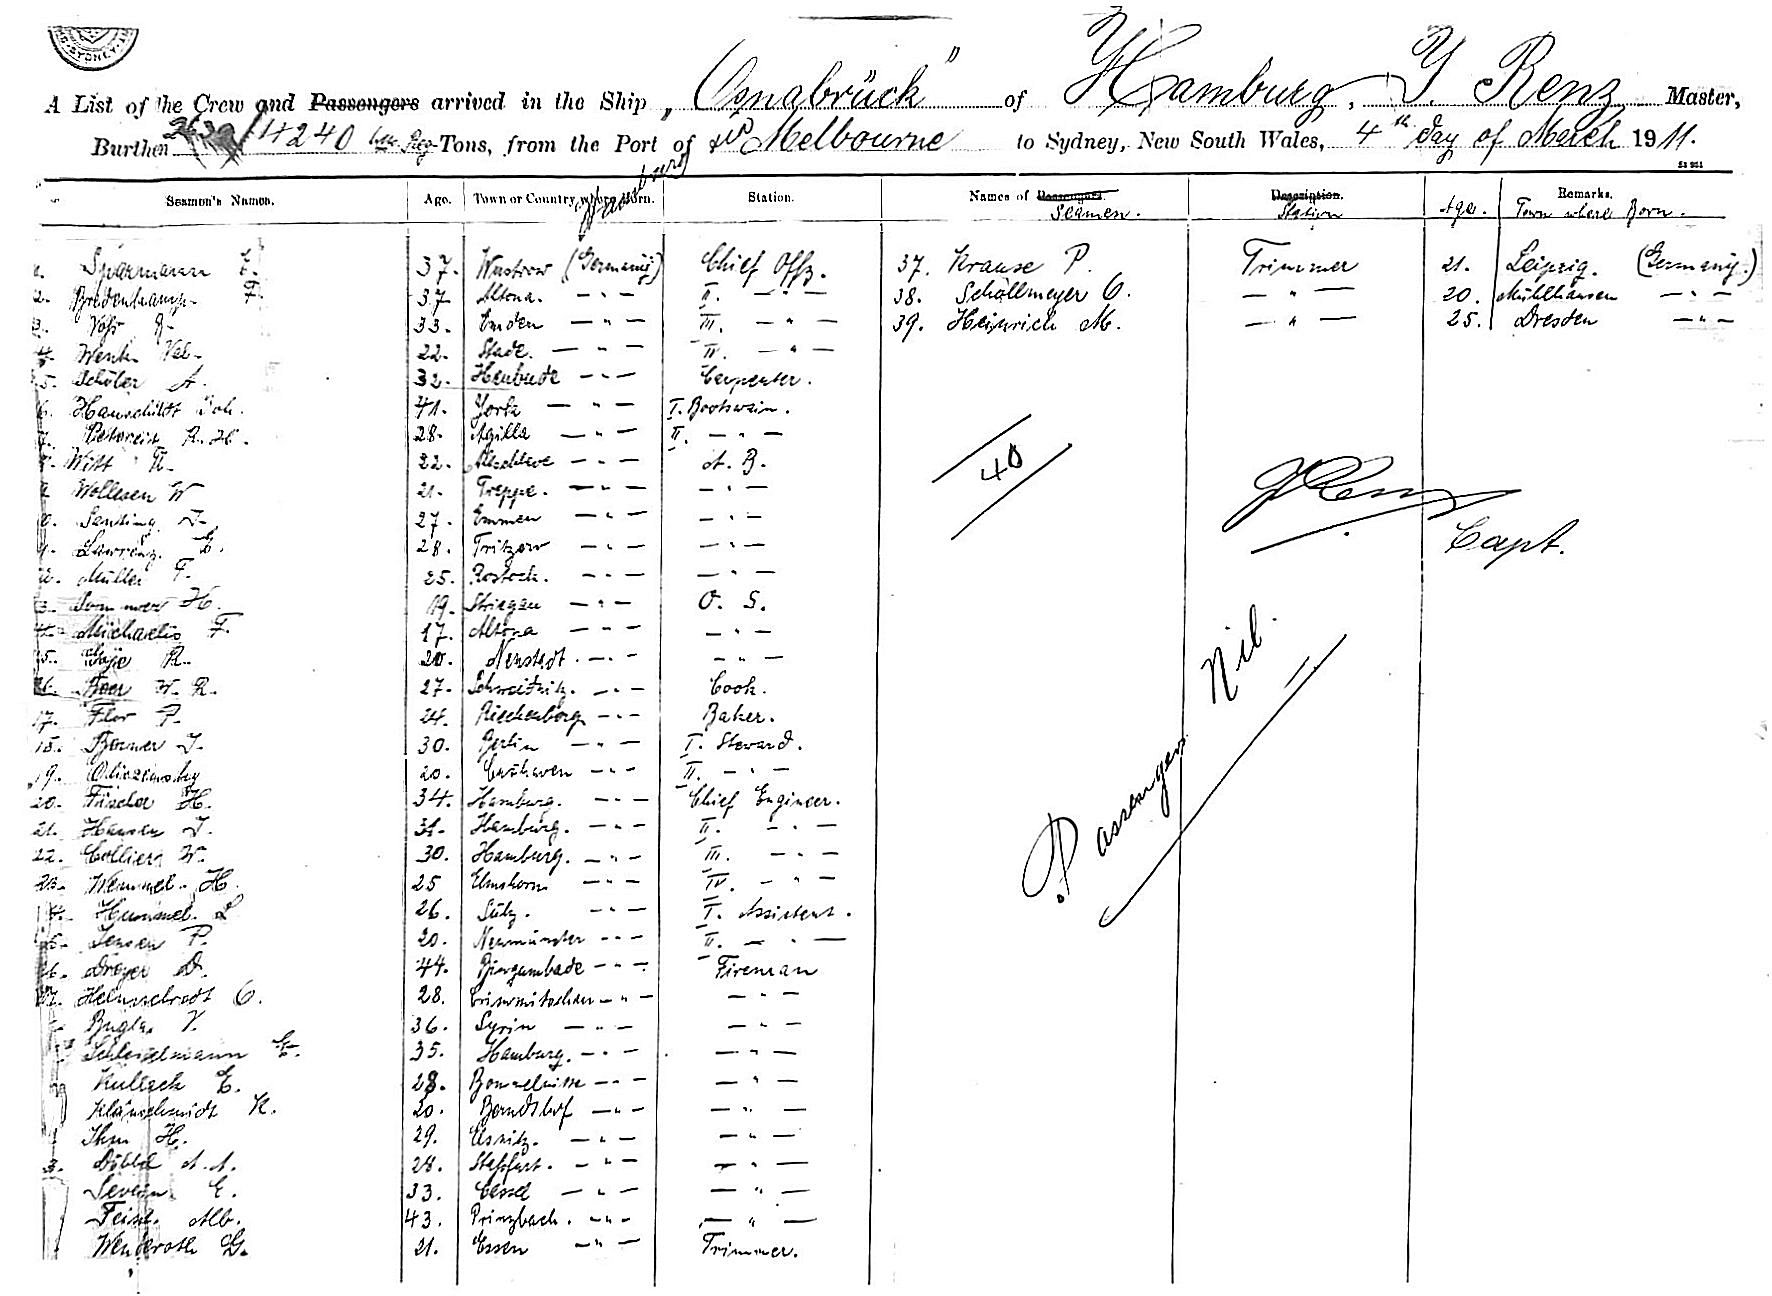 SYDNEY
A List of the Crew and Passengers arrived in the Ship "Osnabrück" of Hamburg, J. Renz Master,
Burthen 4240 Reg Tons, from the Port of Melbourne to Sydney, New South Wales, 4th day of March 1911.
Hamburg
Seamen's Names. Age. Town or Country where Born. Station. Names of Passengers. Seamen. Description. Station Age. Remarks. Town where Born.
1. Sparmann 37. Wustrow (Germany) Chief Offz. 37. Krause P. Trimmer 21. Leipzig. (Germany.)
2. F. 37. Altona. — " — II. — " — 38. Schöllmeyer O. — " — 20. Mühlhausen — " —
3. Voss 33. Emden — " — III. — " — 39. Heinrich M. — " — 25. Dresden — " —
4. 22. Stade. — " — IV. — " —
5. Schöler A. 32. Heubude — " — Carpenter.
6. Hauschildt Joh. 41. York — " — I. Bootswain.
7. R. H. 28. Agilla — " — II. — " —
8. Witt 22. — " — A. B.
9. Wollesen W 21. Treppe. — " — — " —
10. Sending J. 27. Emmen — " — — " —
11. Lawrenz E. 28. Tritzow — " — — " —
12. Müller F. 25. Rostock. — " — — " —
13. Sommer H. 19. Striegau — " — O. S.
14. Michaelis F. 17. Altona — " — — " —
15. R. 20. Neustedt. — " — — " —
16. Boer W. R. 27. Schweidnitz. — " — Cook.
17. Flor P. 24. — " — Baker.
18. J. 30. Berlin — " — I. Steward.
19. 20. Cuxhaven — " — II. — " —
20. Fischer H. 34. Hamburg. — " — Chief Engineer.
21. Hansen J. 31. Hamburg. — " — II. — " —
22. Colliers W. 30. Hamburg. — " — III. — " —
23. Wemmel. H. 25 Elmshorn — " — IV. — " —
24. Hummel. L 26. Sülz. — " — I. Assistent.
25. Jensen P. 20. Neumünster — " — II. — " —
26. Dreyer D. 44. — " — Fireman
27. O. 28. — " — — " —
V. 36. Syrin — " — — " —
35. Hamburg. — " — — " —
Kullack E. 28. — " — — " —
Klänschmidt K. 20. Berndshof — " — — " —
Ihm H. 29. — " — — " —
3. A. A. 28. Stassfurt. — " — — " —
Severin E. 33. Cassel — " — — " —
Feist. Alb. 43. Prinzbach. — " — — " —
Wenderoth G. 21. Essen — " — Trimmer.
40
J Renz
Capt.
Passengers Nil.